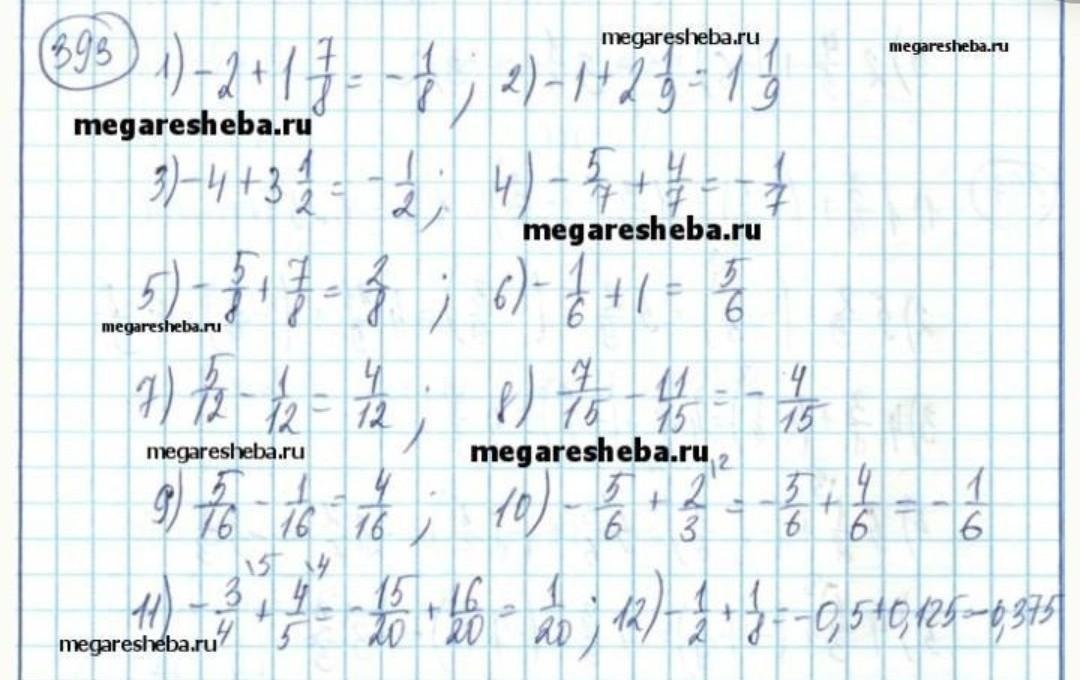 393 1) -2 + 1 7/8 = - 1/8 ; 2) -1 + 2 1/9 = 1 1/9
megaresheba.ru megaresheba.ru
megaresheba.ru
3) -4 + 3 1/2 = - 1/2 ; 4) - 5/7 + 4/7 = - 1/7
megaresheba.ru
5) - 5/8 + 7/8 = 2/8 ; 6) - 1/6 + 1 = 5/6
megaresheba.ru
7) 5/12 - 1/12 = 4/12 ; 8) 7/15 - 11/15 = - 4/15
megaresheba.ru megaresheba.ru
9) 5/16 - 1/16 = 4/16 ; 10) - 5/6 + 2/3 \2 = - 5/6 + 4/6 = - 1/6
11) - 3/4 \5 + 4/5 \4 = - 15/20 + 16/20 = 1/20 ; 12) - 1/2 + 1/8 = -0,5+0,125=-0,375
megaresheba.ru